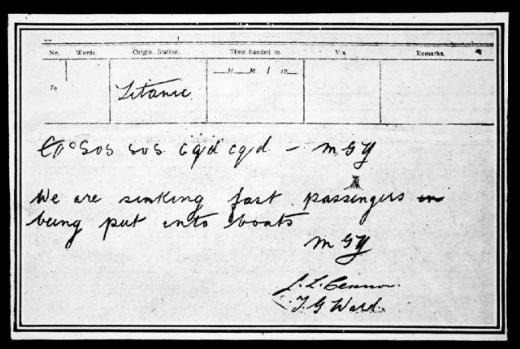 No. Words. Origin. Station. Time handed in. Via. Remarks.
To Titanic H M 19
SOS SOS cqd cqd - MGY
We are sinking fast passengers
being put into boats
MGY